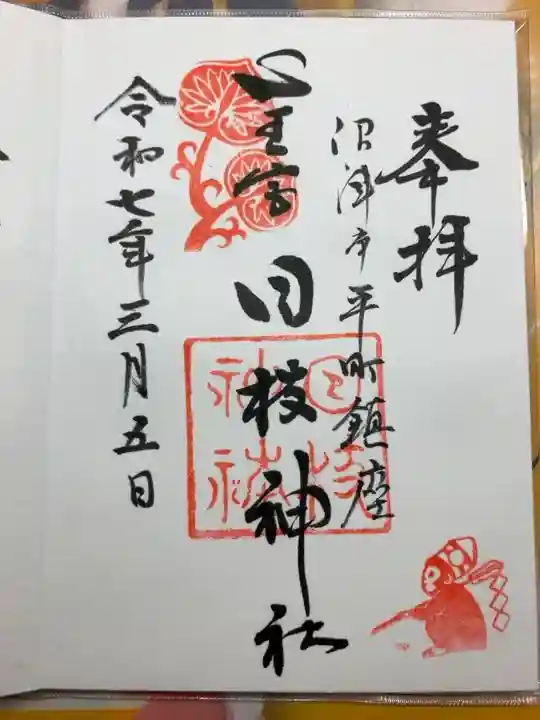 奉拝
沼津市平町鎮座
山王宮 日枝神社
日枝神社
令和七年三月五日